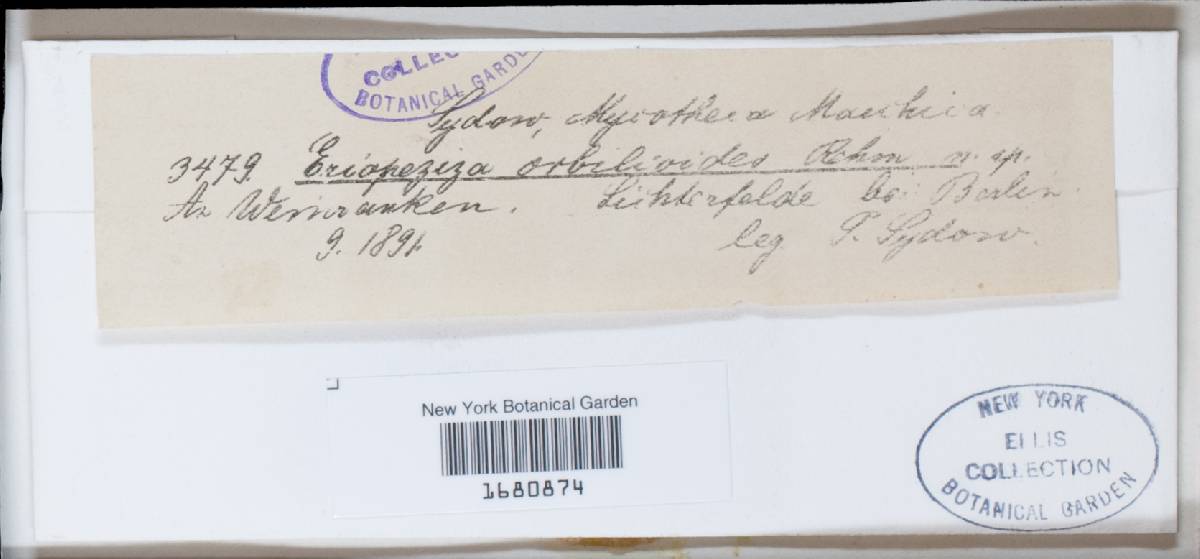 COLLEC
BOTANICAL GARDE
Sydow, Mycotheca Marchica.
3479. Eriopeziza orbilioides Rehm n. sp.
An Weinranken. Lichterfelde bei Berlin.
9. 1891. leg. P. Sydow.
New York Botanical Garden
1680874
NEW YORK
ELLIS
COLLECTION
BOTANICAL GARDEN